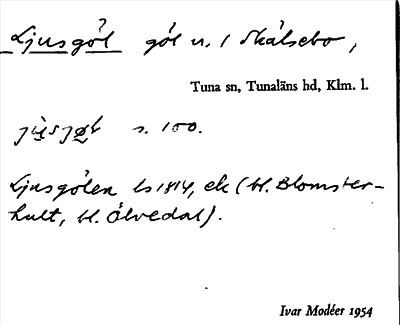 Ljusgöl göl n. / Skälsebo,
Tuna sn, Tunaläns hd, Klm. l.
s. 100.
Ljusgölen ls 1814, ek (bl. Blomster-
hult, bl. Ölvedal).
Ivar Modéer 1954